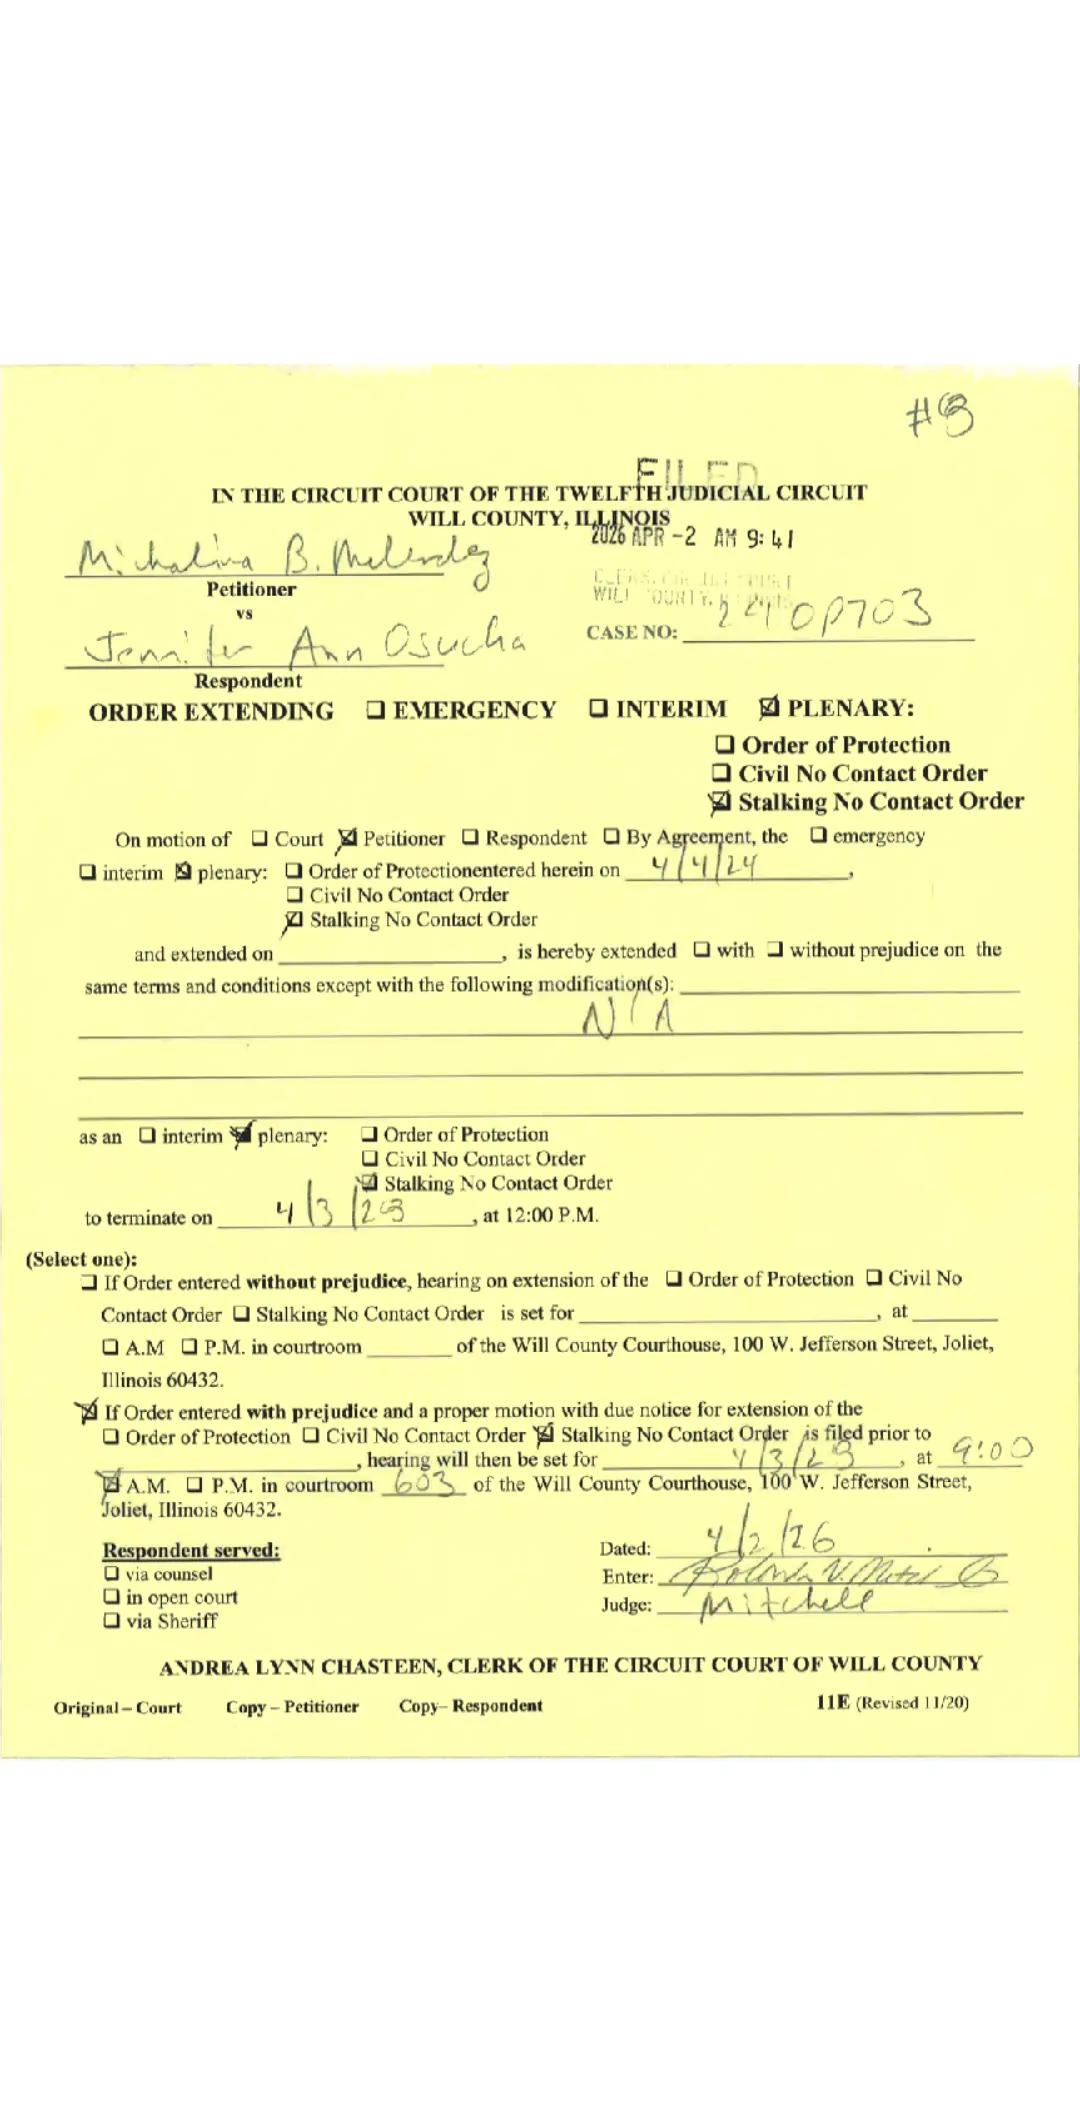 #3
FILED
IN THE CIRCUIT COURT OF THE TWELFTH JUDICIAL CIRCUIT
WILL COUNTY, ILLINOIS
2026 APR -2 AM 9:41
Michalina B. Melendez
Petitioner
CLERK, CIRCUIT COURT
WILL COUNTY,
vs
CASE NO: 24OP703
Jennifer Ann Osucha
Respondent
ORDER EXTENDING ☐ EMERGENCY ☐ INTERIM ☒ PLENARY:
☐ Order of Protection
☐ Civil No Contact Order
☒ Stalking No Contact Order
On motion of ☐ Court ☒ Petitioner ☐ Respondent ☐ By Agreement, the ☐ emergency
☐ interim ☒ plenary: ☐ Order of Protectionentered herein on 4/4/24,
☐ Civil No Contact Order
☒ Stalking No Contact Order
and extended on ________, is hereby extended ☐ with ☐ without prejudice on the
same terms and conditions except with the following modification(s):
N/A
as an ☐ interim ☒ plenary: ☐ Order of Protection
☐ Civil No Contact Order
☒ Stalking No Contact Order
to terminate on 4/3/28, at 12:00 P.M.
(Select one):
☐ If Order entered without prejudice, hearing on extension of the ☐ Order of Protection ☐ Civil No
Contact Order ☐ Stalking No Contact Order is set for ________, at ________
☐ A.M ☐ P.M. in courtroom ________ of the Will County Courthouse, 100 W. Jefferson Street, Joliet,
Illinois 60432.
☒ If Order entered with prejudice and a proper motion with due notice for extension of the
☐ Order of Protection ☐ Civil No Contact Order ☒ Stalking No Contact Order is filed prior to
________, hearing will then be set for 4/3/28, at 9:00
☒ A.M. ☐ P.M. in courtroom 603 of the Will County Courthouse, 100 W. Jefferson Street,
Joliet, Illinois 60432.
Respondent served:
☐ via counsel
☐ in open court
☐ via Sheriff
Dated: 4/2/26
Enter:
Judge: Mitchell
ANDREA LYNN CHASTEEN, CLERK OF THE CIRCUIT COURT OF WILL COUNTY
Original – Court Copy – Petitioner Copy – Respondent 11E (Revised 11/20)